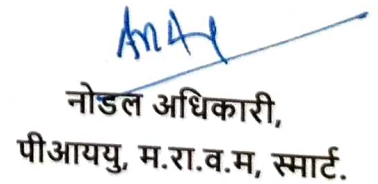 नोडल अधिकारी,
पीआययु, म.रा.व.म, स्मार्ट.